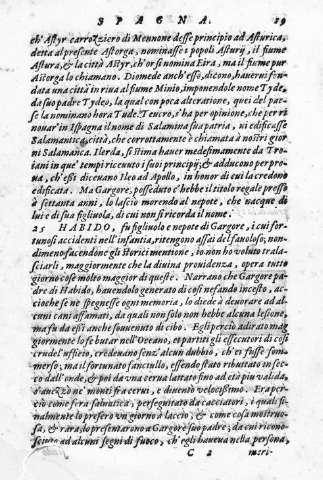 SPAGNA. 19
ch'Astyr carrozziero di Mennone desse principio ad Asturica,
detta al presente Astorga, nominasse i popoli Asturij, il fiume
Astura, & la città Astyr, ch'or si nomina Eira, ma il fiume pur
Astorga lo chiamano. Diomede anch'esso, dicono, haueruì fon-
data una città in riua al fiume Minio, imponendole nome Tyde,
da suo padre Tydeo, la qual con poca alteratione, quei del pae-
se la nominano hora Tude. Teucro, s'ha per opinione, che per ri
nouar' in Ispagna il nome di Salamina sua patria, ui edificasse
Salamantica, città, che corrottamente è chiamata à nostri gior
ni Salamanca. Ilerda, si stima hauer medesimamente da Tro-
iani in que' tempi riceuuto i suoi principij, & adducono per pro-
ua, ch'essi diceuano Ileo ad Apollo, in honor di cui la credono
edificata. Ma Gargore, posseduto c'hebbe il titolo regale presso
à settanta anni, lo lasciò morendo al nepote, che nacque di
lui e di sua figliuola, di cui non si ricorda il nome.
25 HABIDO, fu figliuolo e nepote di Gargore, i cui for-
tunosi accidenti nell'infantia, ritengono assai del fauoloso; non-
dimeno facendone gli storici mentione, io non ho voluto trala-
sciarli, maggiormente che la diuina prouidenza, opera tutto
giorno cose molto maggior di queste. Narrano che Gargore pa-
dre di Habido, hauendolo generato di così nefando incesto, ac-
cioche se ne spegnesse ogni memoria, lo diede à deuorare ad al-
cuni cani affamati, da quali non solo non hebbe alcuna lesione,
ma fu da essi anche souuenuto di cibo. Egli perciò adirato mag
giormente lo fe buttar nell'Oceano, et partiti gli essecutori di così
crudel'ufficio, credeuano senz'alcun dubbio, ch'ei fusse som-
merso; ma il fortunato fanciullo, essendo stato ributtato in sec-
co dall'onde, & poi da vna cerua lattato fino ad età piu valida,
s'auezzò ne' monti fra cerui, e diuentò velocissimo. Era per-
ciò come fera saluatica, perseguitato da cacciatori, i quali fi-
nalmente lo presero vn giorno à laccio, & come cosa mostruo-
sa, & rara, lo presentarono a Gargore suo padre; da cui ricono-
sciuto ad alcuni segni di fuoco, ch'egli haueua nella persona,
C 2 meri-